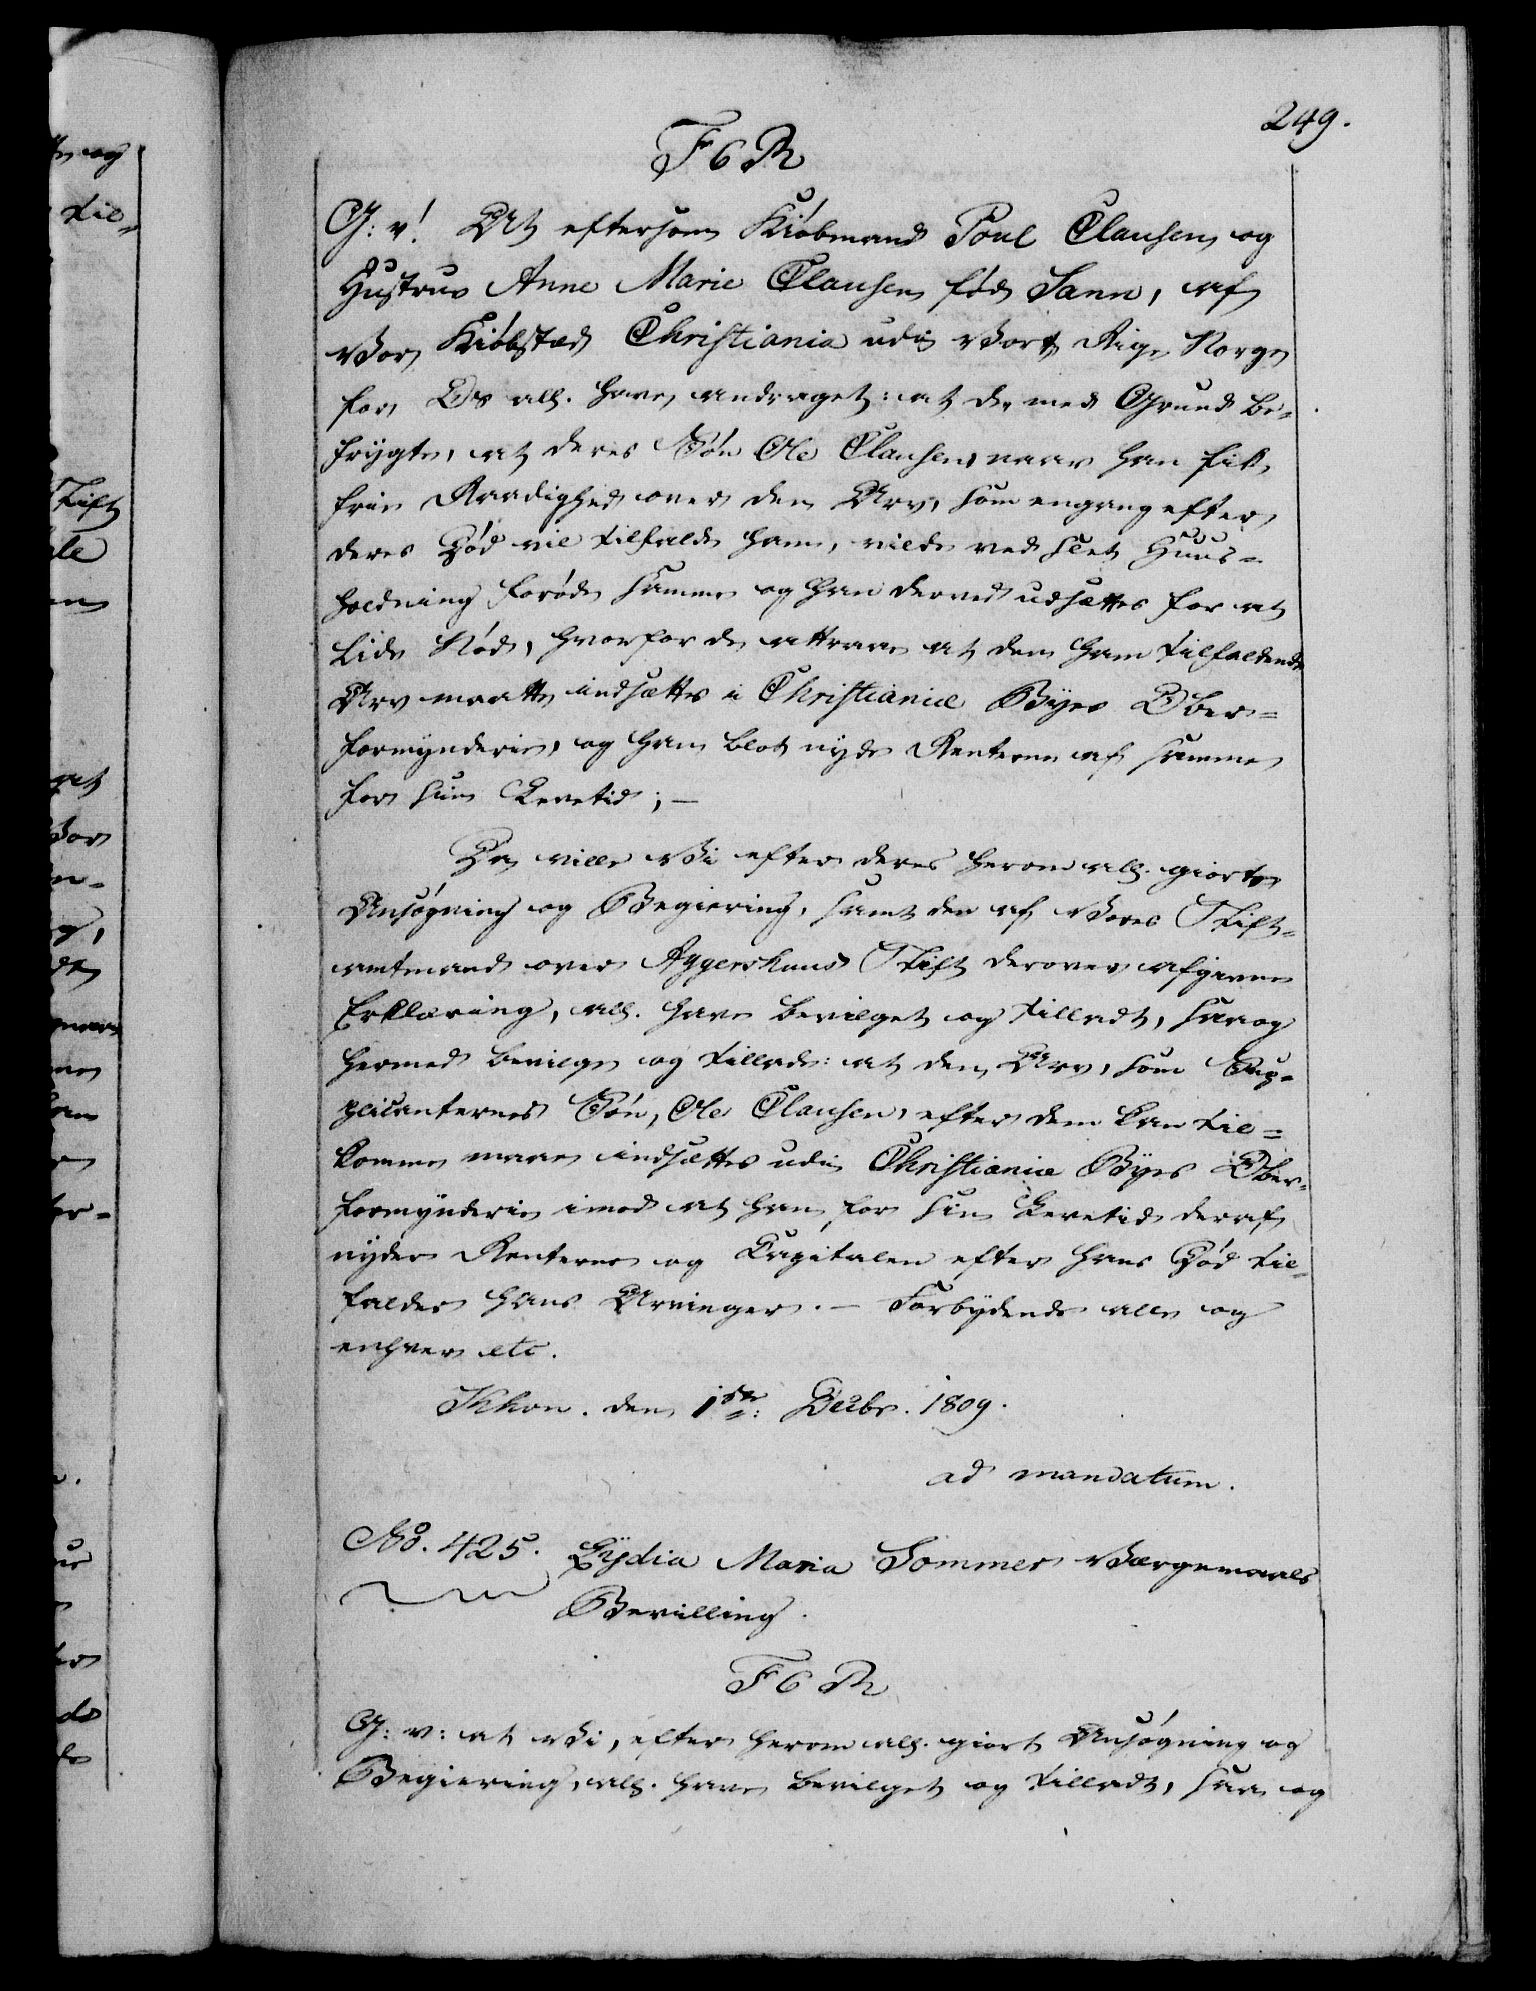 249.
F6R
G: v! At eftersom Kiöbmand Poul Clausen og
Hustrue Anne Marie Clausen föd Sann, af
Vor Kiöbstæd Christiania udi Vort Rige Norge
for Os all. have andraget: at de med Grund be-
frygte, at deres Sön Ole Clausen, naar han fik
frie Raadighed over den Arv, som engang efter
deres Död vil tilfalde ham, vilde ved slet Huus-
holdning foröde samme og han derved udsættes for at
lide Nöd, hvorfor de attraae at den ham tilfaldende
Arv maatte indsættes i Christianiæ Byes Ober-
formynderie, og han blot nyde Renterne af samme
for sin Levetid; —
Da ville Vi efter deres herom all. giorte
Ansögning og Begiering, samt den af Vores Stift-
amtmand over Aggershuus Stift derover afgivne
Erklæring, all. have bevilget og tilladt, saa og
hermed bevilge og tillade: at den Arv, som Sup-
plicanternes Sön, Ole Clausen, efter dem kan til-
komme maae indsættes udi Christianiæ Byes Ober-
formynderie imod at han for sin Levetid deraf
nyder Renterne og Capitalen efter hans Död til-
falder hans Arvinger. — Forbydende alle og
enhver etc.
Khvn. den 1ste: Decbr. 1809.
ad mandatum.
No. 425. Lydia Maria Sommer Værgemaals
Bevilling.
F6R
G: v: at Vi, efter herom all. giort Ansögning og
Begiering, all. have bevilget og tilladt, saa og